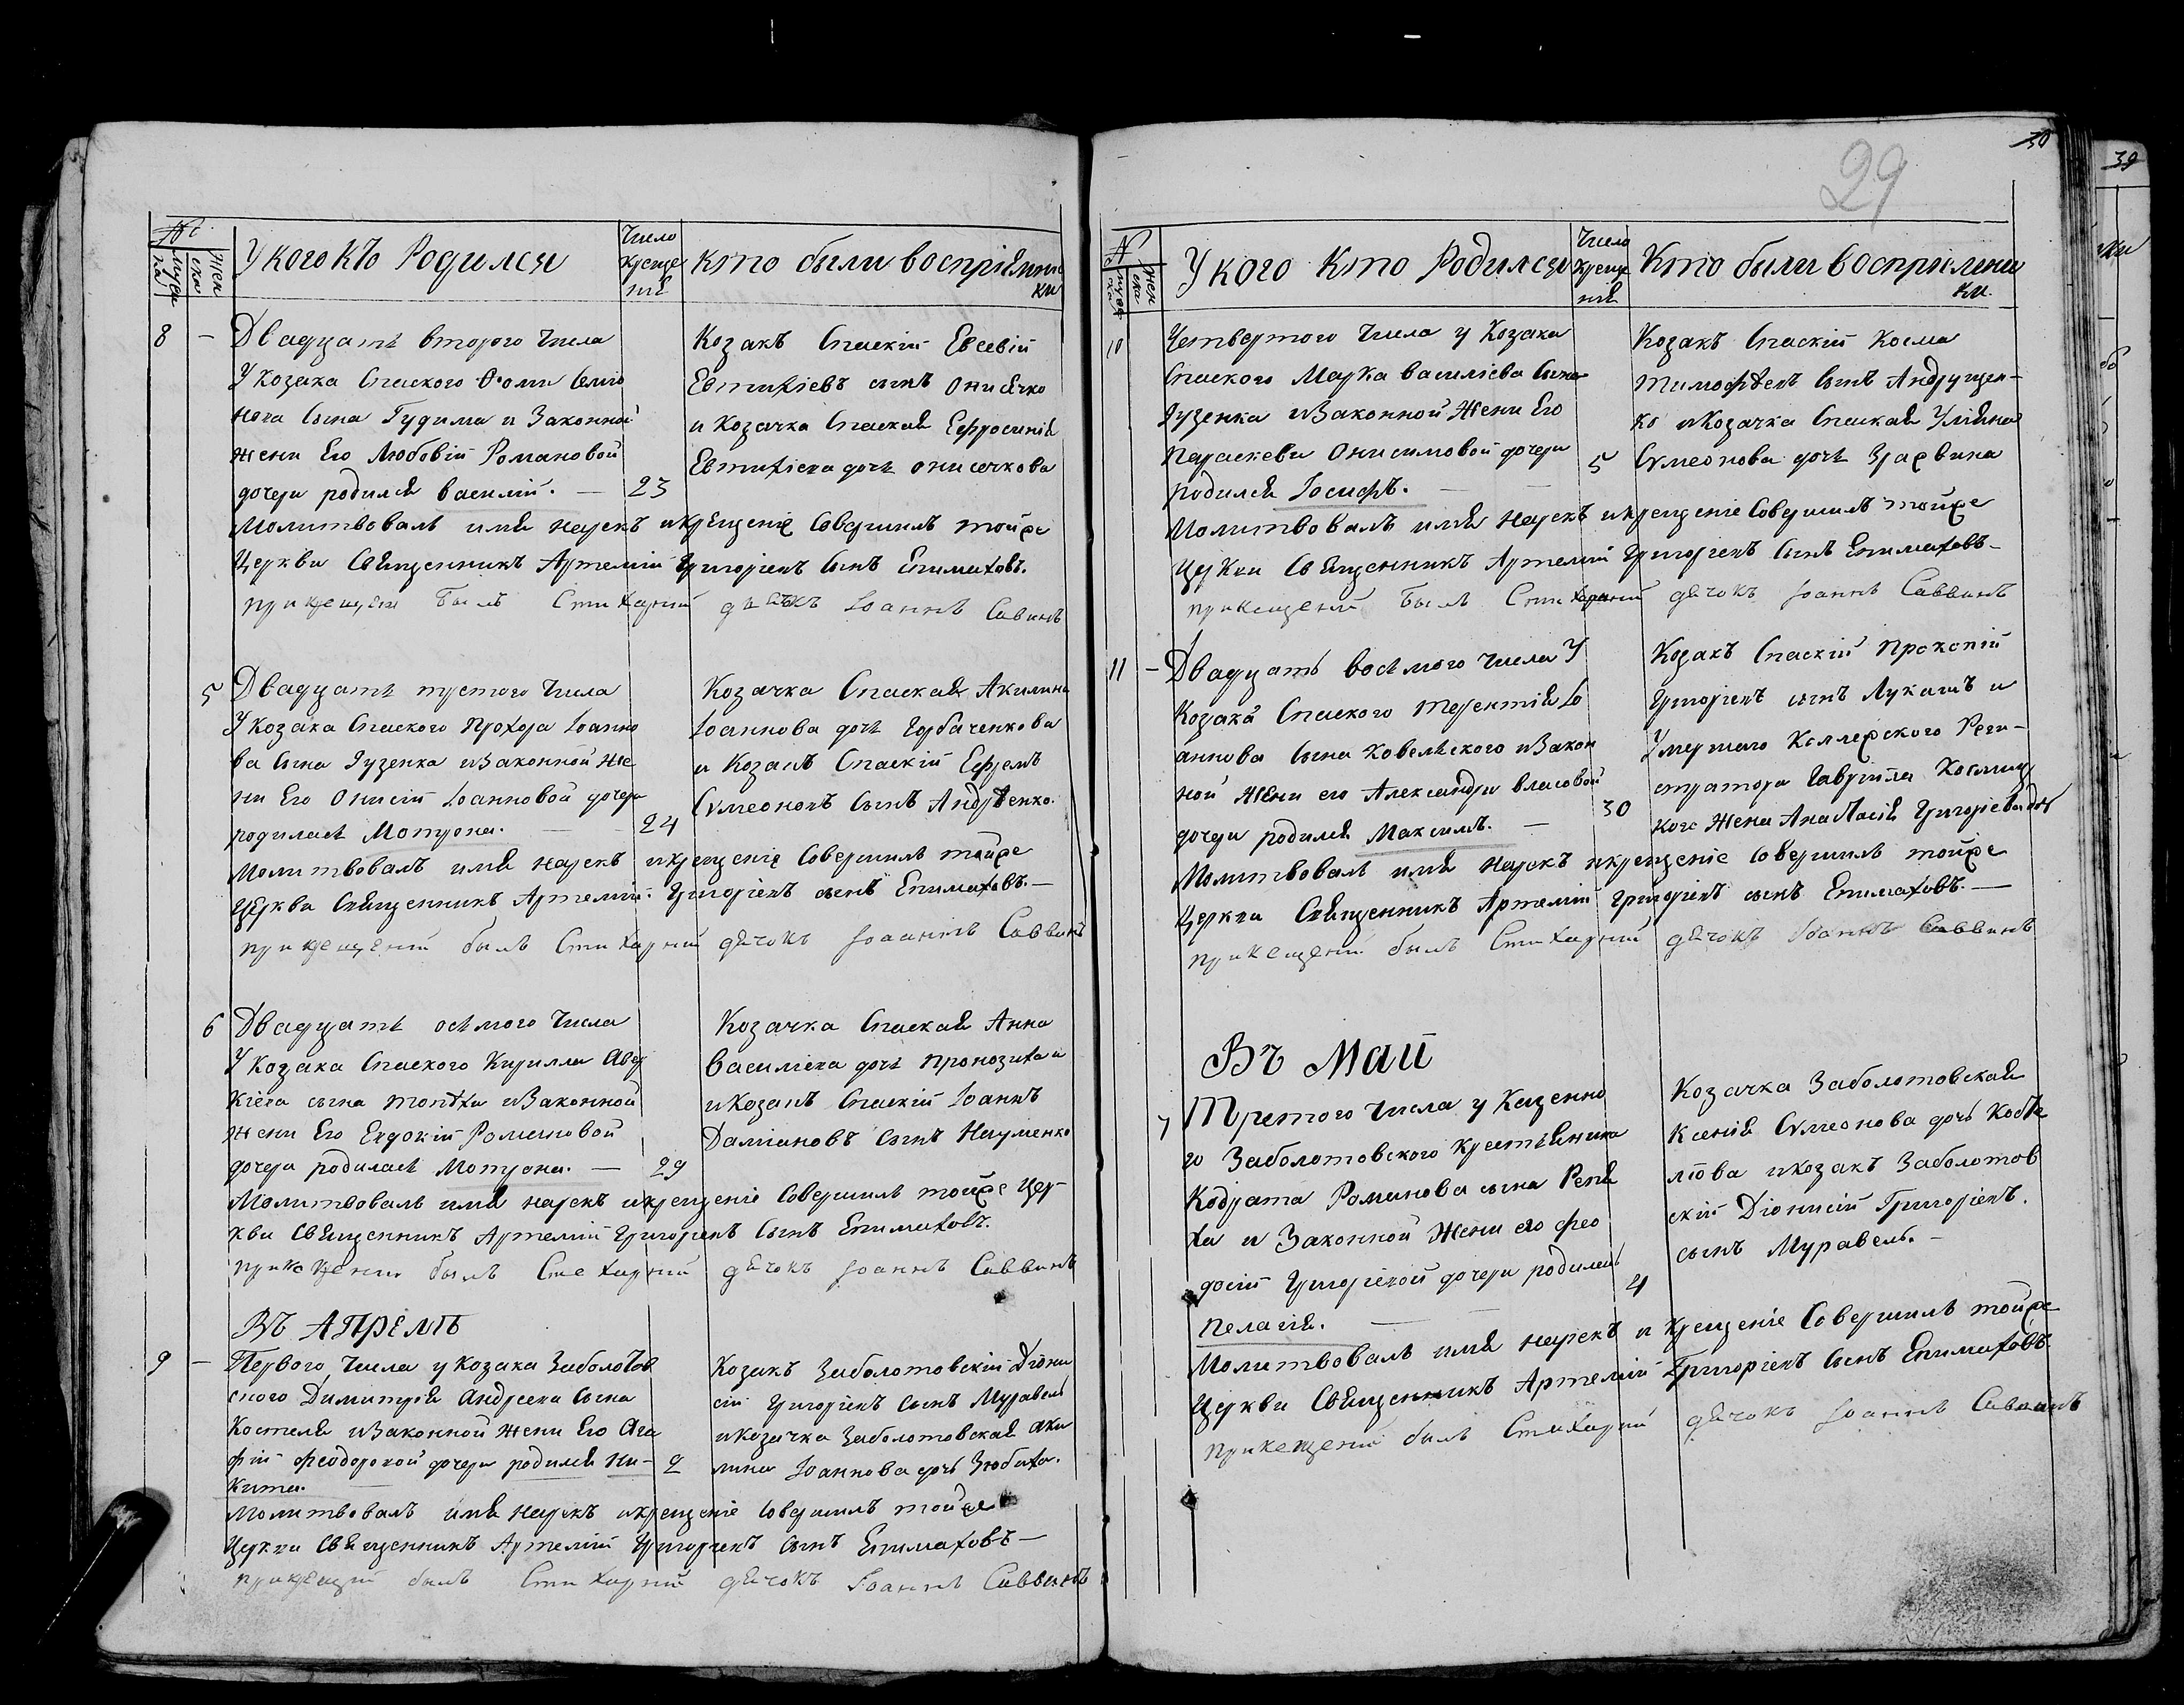 №
мужеска
женска
У кого кто Родился
Число крещенія
кто были воспріемники
8 — Двадцать второго Числа
У козака Спаского Фоми Семіо
нова Сына Гудима и Законной
жени Его Любовіи Романовой
дочери родился Василий. — 23
Козакъ Спаскій Евсевій
Евтихіевъ сынъ Онисечко
и Козачка Спаская Ефросинія
Евтихіева дочь Онисечкова
Молитвовалъ имя нарекъ и крещеніе Совершилъ тойже
Церкви Священникъ Артемій Григоріевъ Сынъ Епимаховъ.
при крещеніи былъ Стихарний дячокъ Іоаннъ Савинъ
5 Двадцать шестого Числа
У Козака Спаского Прохора Іоанно
ва Сына Гузенка и Законной Же
ни Его Онисіи Іоанновой дочери
родилась Мотрона. — 24
Козачка Спаская Акилина
Іоаннова дочь Горбаченкова
и Козакъ Спаскій Ефремъ
Симеоновъ Сынъ Андрѣенко.
Молитвовалъ имя нарекъ и крещеніе Совершилъ тойже
Церкви Священникъ Артемій Григоріевъ сынъ Епимаховъ. —
при крещеніи былъ Стихарний дячокъ Іоаннъ Саввинъ
6 Двадцать осьмого Числа
У Козака Спаского Кирилла Авер
кіева сына и Законной
Жени Его Евдокіи Романовой
дочери родилась Мотрона. — 29
Козачка Спаская Анна
Василіева дочь Пронозиха
и Козакъ Спаскій Іоаннъ
Даміановъ Сынъ Науменко
Молитвовалъ имя нарекъ и крещеніе Совершилъ тойже Цер
кви Священникъ Артемій Григоріевъ Сынъ Епимаховъ.
при крещеніи былъ Стихарний дячокъ Іоаннъ Саввинъ
Въ Апрѣлѣ
9 — Первого Числа у Козака Заболотов
ского Димитрія Андреева Сына
Костеля и Законной жени Его Ага
фіи Феодоровой дочери родился Ни- 2
кита.
Козакъ Заболотовскій Діони
сій Григоріевъ Сынъ Муравель
и Козачка Заболотовская Аки
лина Іоаннова дочь Зюбиха.
Молитвовалъ имя нарекъ и крещеніе Совершилъ тойже
Церкви Священникъ Артемій Григоріевъ Сынъ Епимаховъ —
при крещеніи былъ Стихарний дячокъ Іоаннъ Саввинъ
30
29
№
мужеска
женска
У кого Кто Родился
Число крещенія
Кто были воспріемники.
10 Четвертого Числа у Козака
Спаского Марка Василіева Сына
Гузенка и Законной Жени Его
Параскеви Онисимовой дочери
родился Іосифъ. — 5
Козакъ Спаскій Косма
Тимофѣевъ Сынъ Андрущен-
ко и Козачка Спаская Уліяна
Симеонова дочь
Молитвовалъ имя нарекъ и крещеніе Совершилъ тойже
Церкви Священникъ Артемій Григоріевъ Сынъ Епимаховъ —
при крещеніи былъ Стихарний дячокъ Іоаннъ Саввинъ
11 — Двадцать восьмого Числа У
Козака Спаского Терентія Іо
аннова Сына Ковельского и Закон
ной Жени его Александри Власовой
дочери родился Максимъ. — 30
Козакъ Спаскій Прокопій
Григоріевъ сынъ Лукашъ и
Умершаго Коллежского Реги-
стратора Гавріила
кого Жена Анастасія Григоріева дочь
Молитвовалъ имя нарекъ и крещеніе Совершилъ тойже
Церкви Священникъ Артемій Григоріевъ сынъ Епимаховъ. —
при крещеніи былъ Стихарний дячокъ Іоаннъ Саввинъ
Въ Маи
7 Третого Числа у Казенно
го Заболотовского крестьянина
Кодрата Романова сына Репя
ха и Законной Жени его Фео
досіи Григоріевой дочери родилась 4
Пелагія. —
Козачка Заболотовская
Ксенія Симеонова дочь Костѣ
льова и козакъ Заболотов
скій Діонисій Григоріевъ.
сынъ Муравель. —
Молитвовалъ имя нарекъ и крещеніе Совершилъ тойже
Церкви Священникъ Артемій Григоріевъ Сынъ Епимаховъ
при крещеніи былъ Стихарний дячокъ Іоаннъ Саввинъ
39